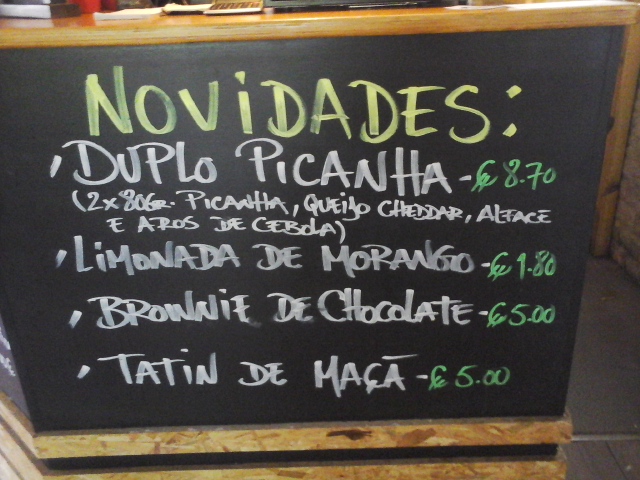 NOVIDADES:
, DUPLO PICANHA - € 8.70
(2x80GR. PICANHA, QUEIJO CHEDDAR, ALFACE
E AROS DE CEBOLA)
, LIMONADA DE MORANGO - € 1.80
, BROWNIE DE CHOCOLATE - € 5.00
, TATIN DE MAÇÃ - € 5.00